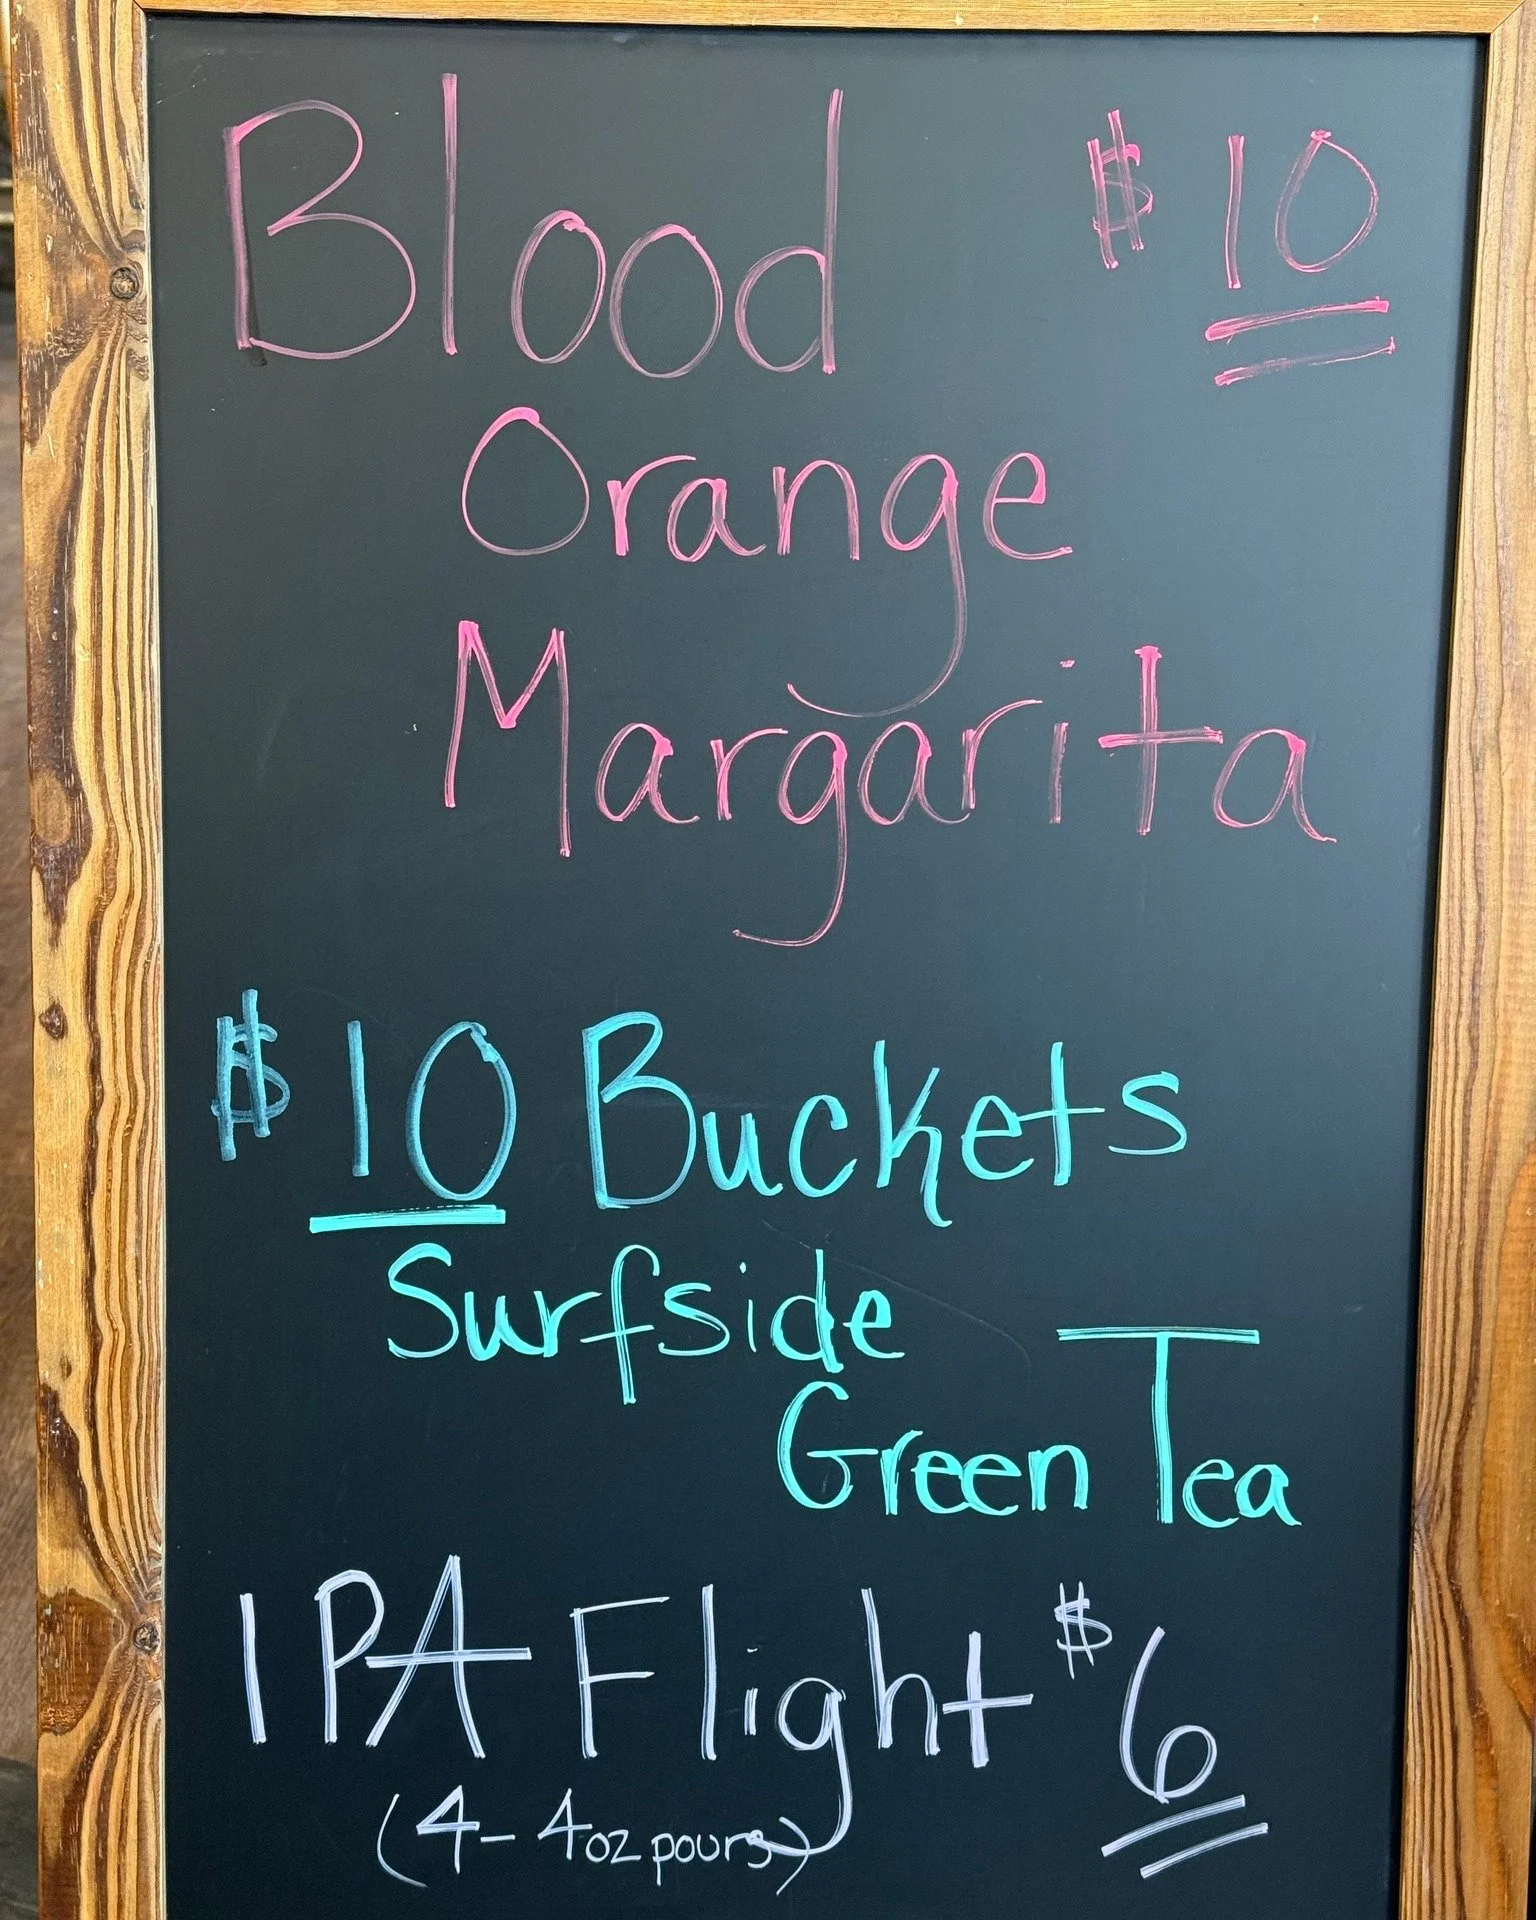 Blood $10
Orange
Margarita
$10 Buckets
Surfside
Green Tea
IPA Flight $6
(4-4oz pours)